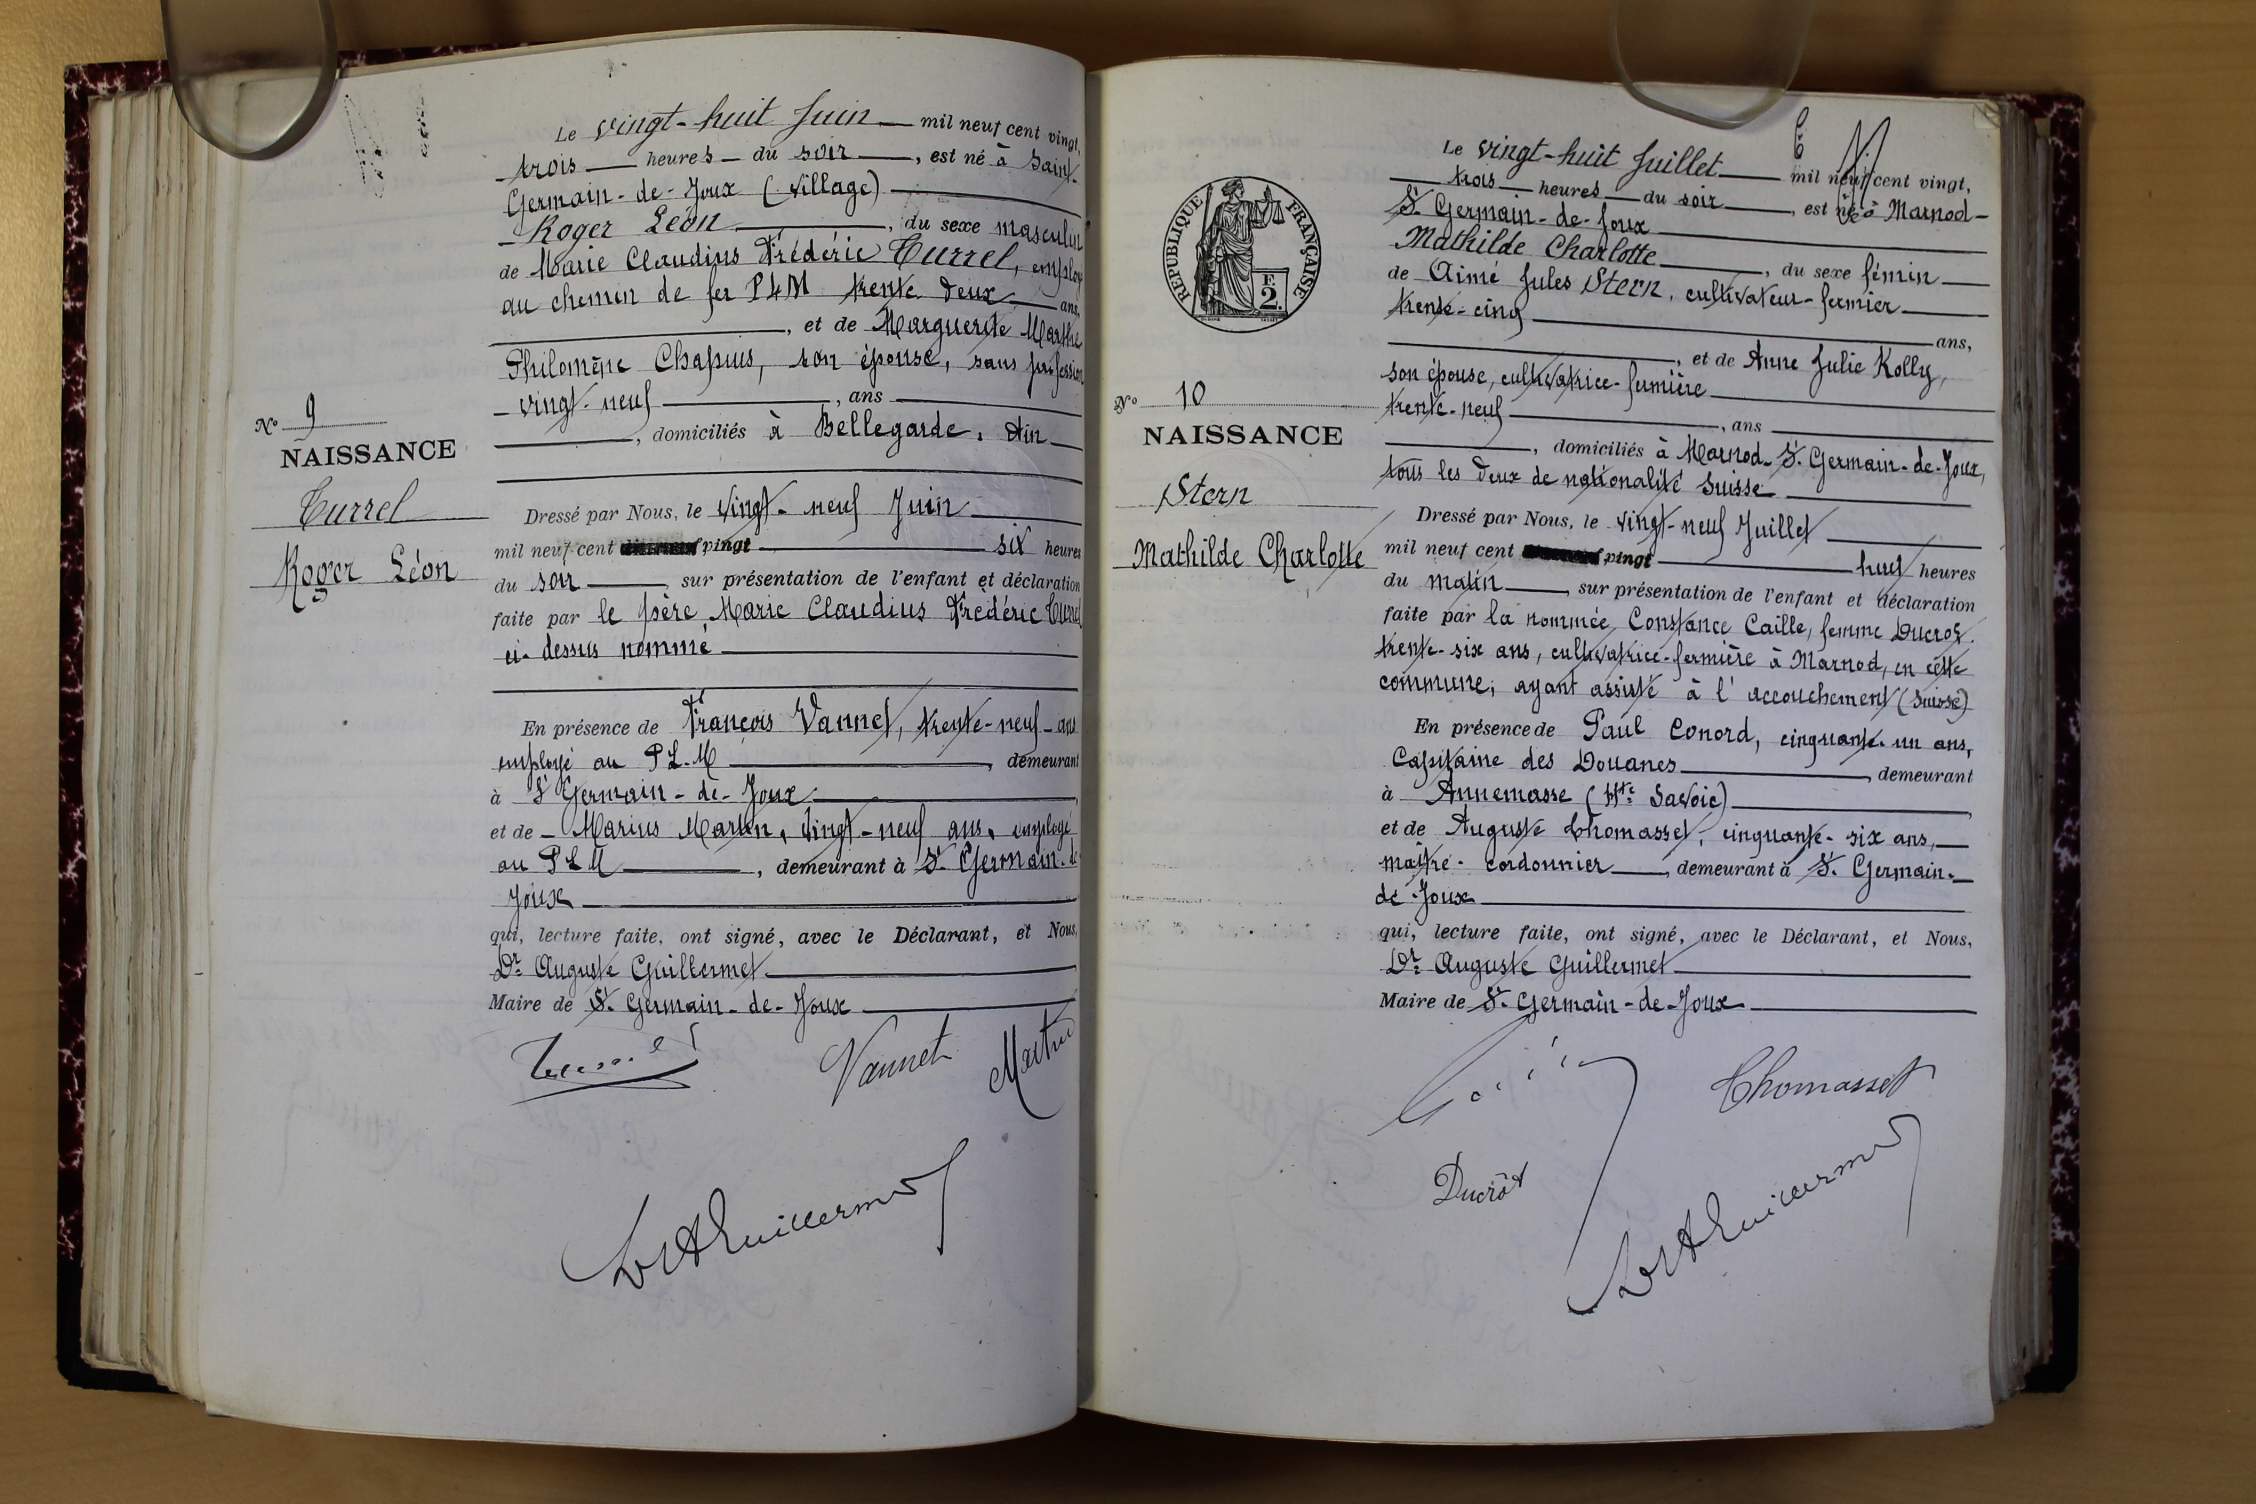 Le vingt-huit Juin mil neuf cent vingt,
trois heures du soir, est né à Saint-
Germain-de-Joux (village)
Roger Léon, du sexe masculin
de Marie Claudius Frédéric Turrel, employé
au chemin de fer PLM trente deux ans,
, et de Marguerite Marthe
Philomène Chapuis, son épouse, sans profession
vingt-neuf, ans
, domiciliés à Bellegarde, Ain
N° 9
NAISSANCE
Turrel
Roger Léon
Dressé par Nous, le vingt-neuf Juin
mil neuf cent vingt six heures
du soir, sur présentation de l'enfant et déclaration
faite par le père, Marie Claudius Frédéric Turrel
ci-dessus nommé
En présence de François Vannet, trente-neuf ans
employé au P.L.M, demeurant
à St Germain-de-Joux
et de Marius Martin, vingt-neuf ans, employé
au PLM, demeurant à St Germain-de
Joux
qui, lecture faite, ont signé, avec le Déclarant, et Nous,
Dr Auguste Guillermet
Maire de St Germain-de-Joux
Turrel Vannet Martin
Dr A Guillermet
Le vingt-huit Juillet mil neuf cent vingt,
trois heures du soir, est né à Marnod-
St Germain-de-Joux
Mathilde Charlotte, du sexe fémin
de Aimé Jules Stern, cultivateur-fermier
trente-cinq
ans,
, et de Anne Julie Kolly,
son épouse, cultivatrice-fermière
trente-neuf, ans
, domiciliés à Marnod-St Germain-de-Joux,
tous les deux de nationalité Suisse
RÉPUBLIQUE FRANÇAISE
F
2.
N° 10
NAISSANCE
Stern
Mathilde Charlotte
Dressé par Nous, le vingt-neuf Juillet
mil neuf cent vingt huit heures
du matin, sur présentation de l'enfant et déclaration
faite par la nommée Constance Caille, femme Ducrot
trente-six ans, cultivatrice-fermière à Marnod, en cette
commune, ayant assisté à l'accouchement (Suisse)
En présence de Paul Conord, cinquante-un ans,
Capitaine des Douanes, demeurant
à Annemasse (Hte Savoie)
et de Auguste Thomasset, cinquante-six ans,
maître-cordonnier, demeurant à St Germain-
de-Joux
qui, lecture faite, ont signé, avec le Déclarant, et Nous,
Dr Auguste Guillermet
Maire de St Germain-de-Joux
Thomasset
Ducrôt
Dr A Guillermet